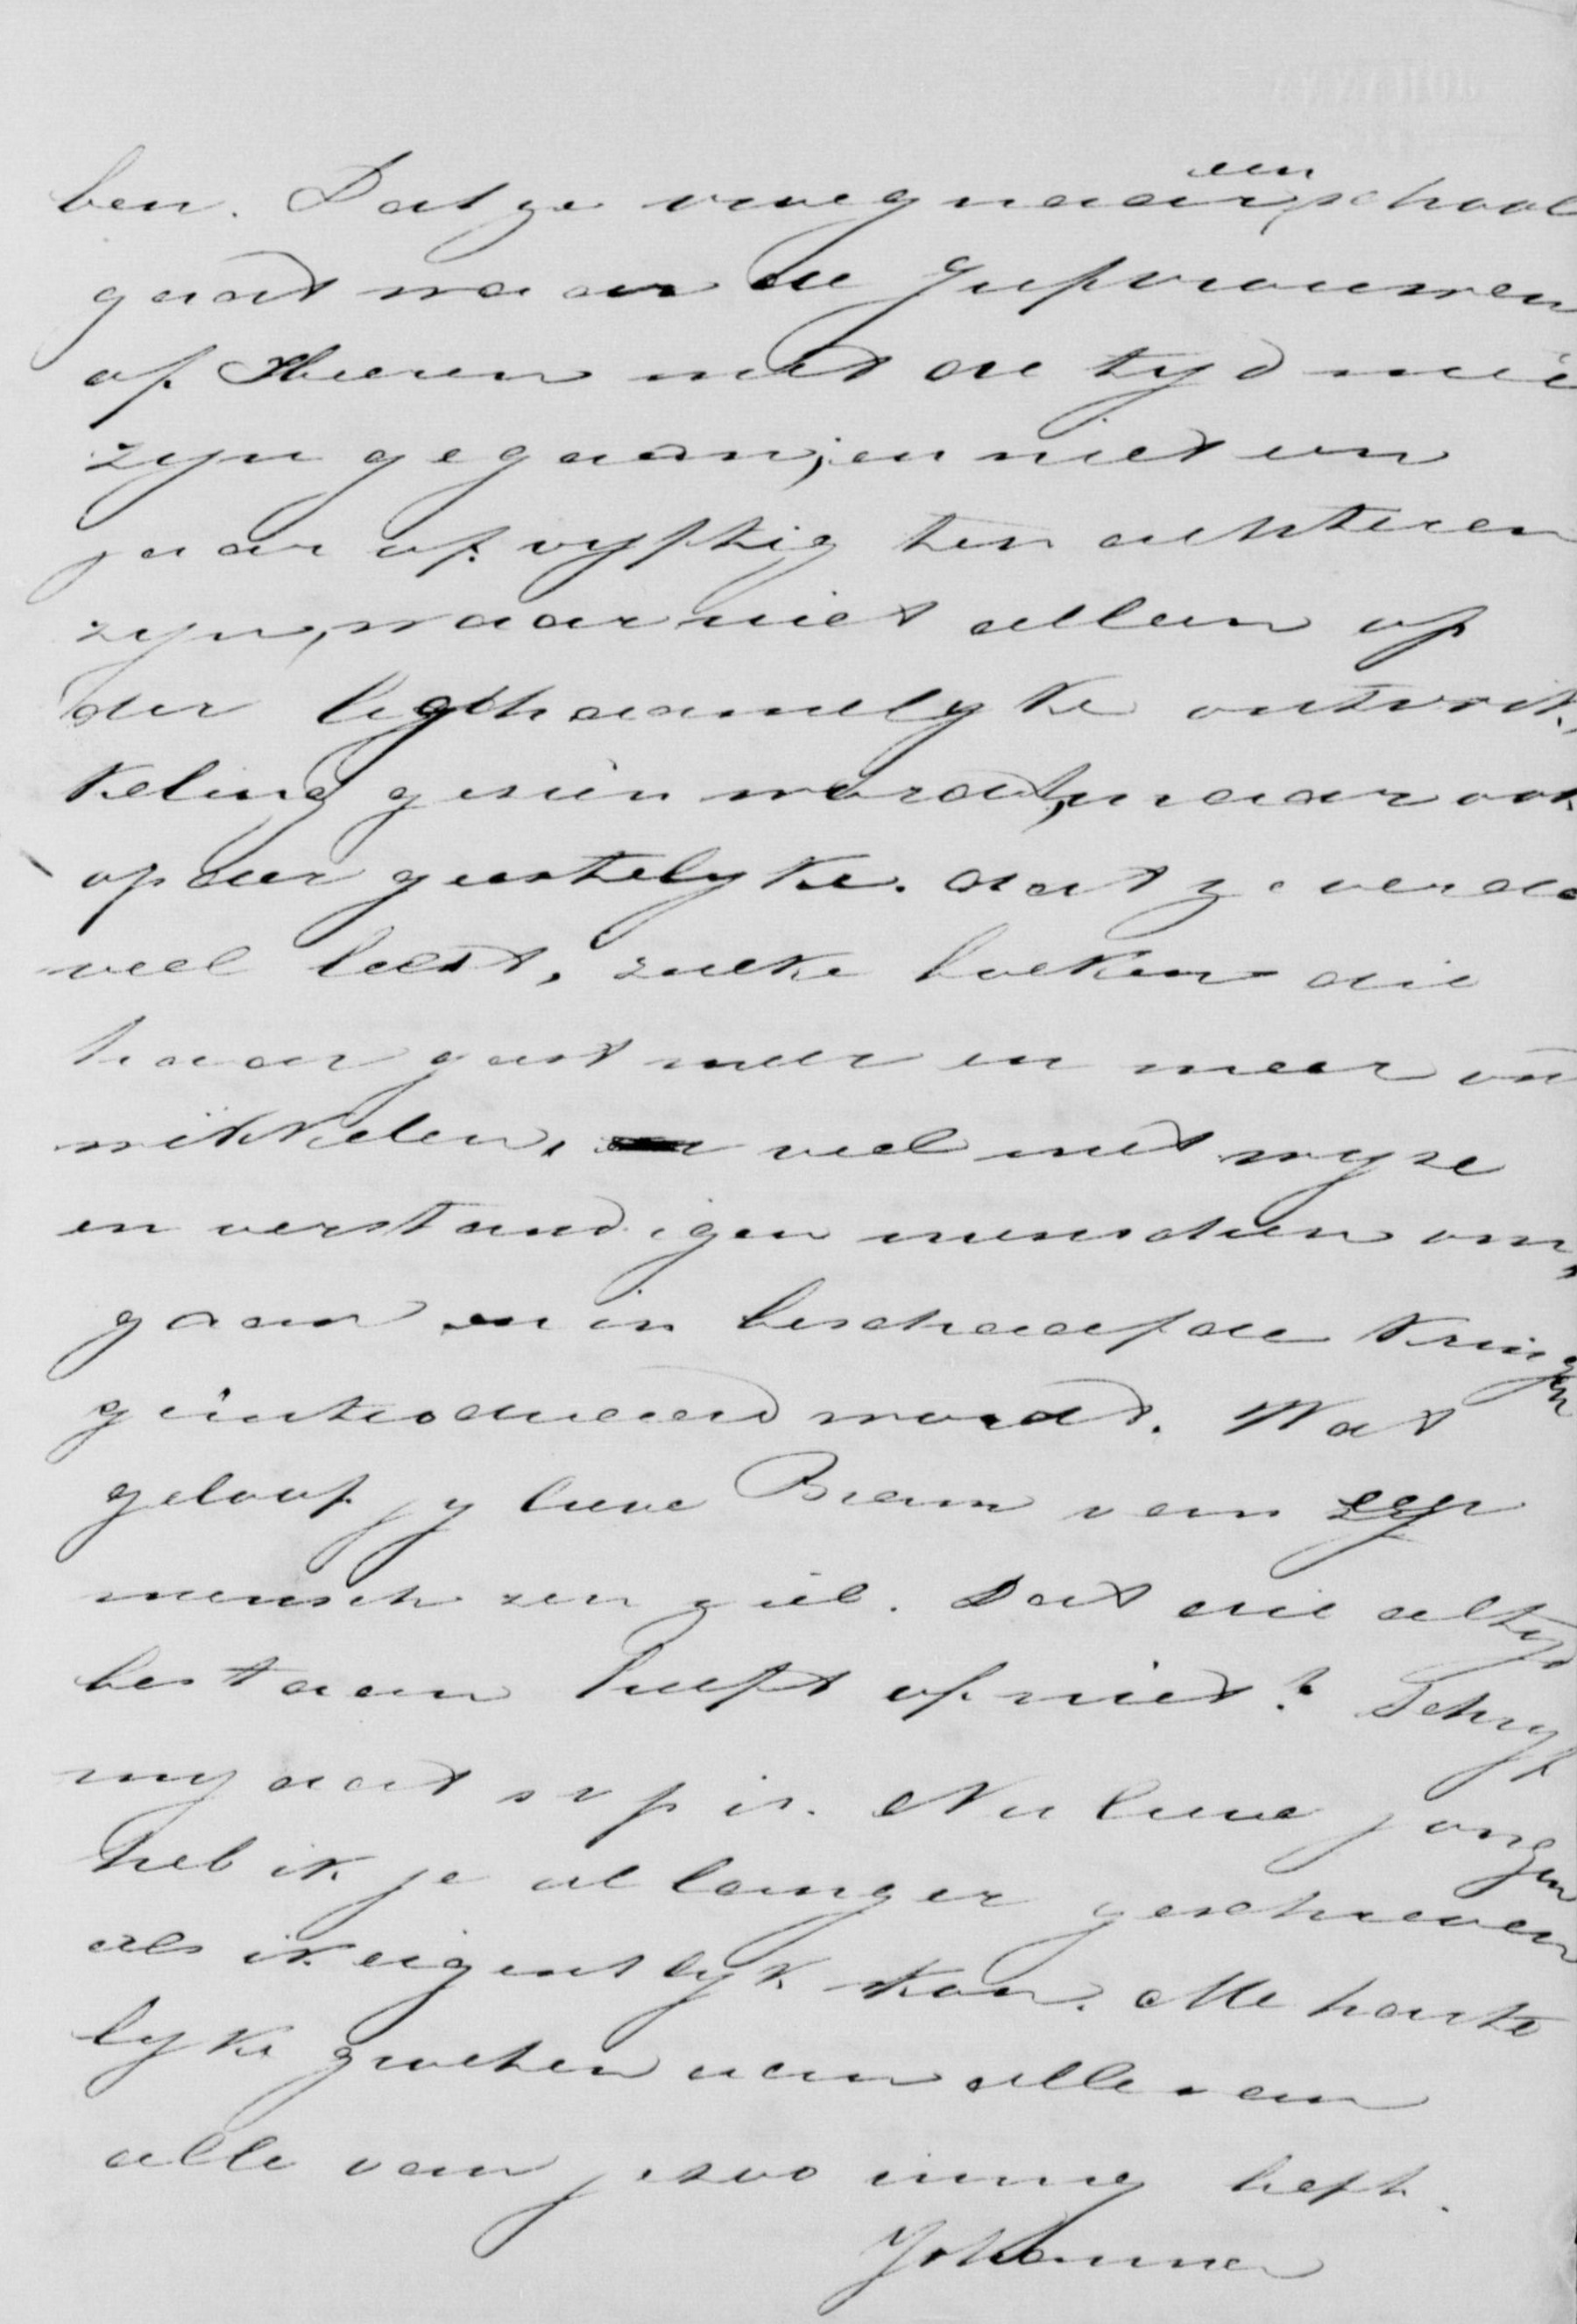 ben. Dat ze vroeg naar een school
gaat waar de Jufvrouwen
of Heeren met de tyd meê
zyn gegaan, en niet een
jaar of vyftig ten achteren
zyn, waar niet alleen op
der ligchaamelyke ontwik,
keling gezien wordt, maar ook
op der geestelyke. dat ze verde
veel leest, zulke boeken die
haar geest meer en meer ont
wikkelen, veel met wyze
en verstandigen menschen om,
gaan en in beschaafde kringen
geïntroduceerd wordt. Wat
geloof jy lieve Bram van een
mensch zen ziel. Dat die altyd
bestaan heeft of niet? Schryf
my dat svp is. Nu lieve jongen
heb ik je al langer geschreven
als ik eigentlyk kon. Alle harte
lyke groeten aan alle van
alle van je zoo innig liefh.
Johanna